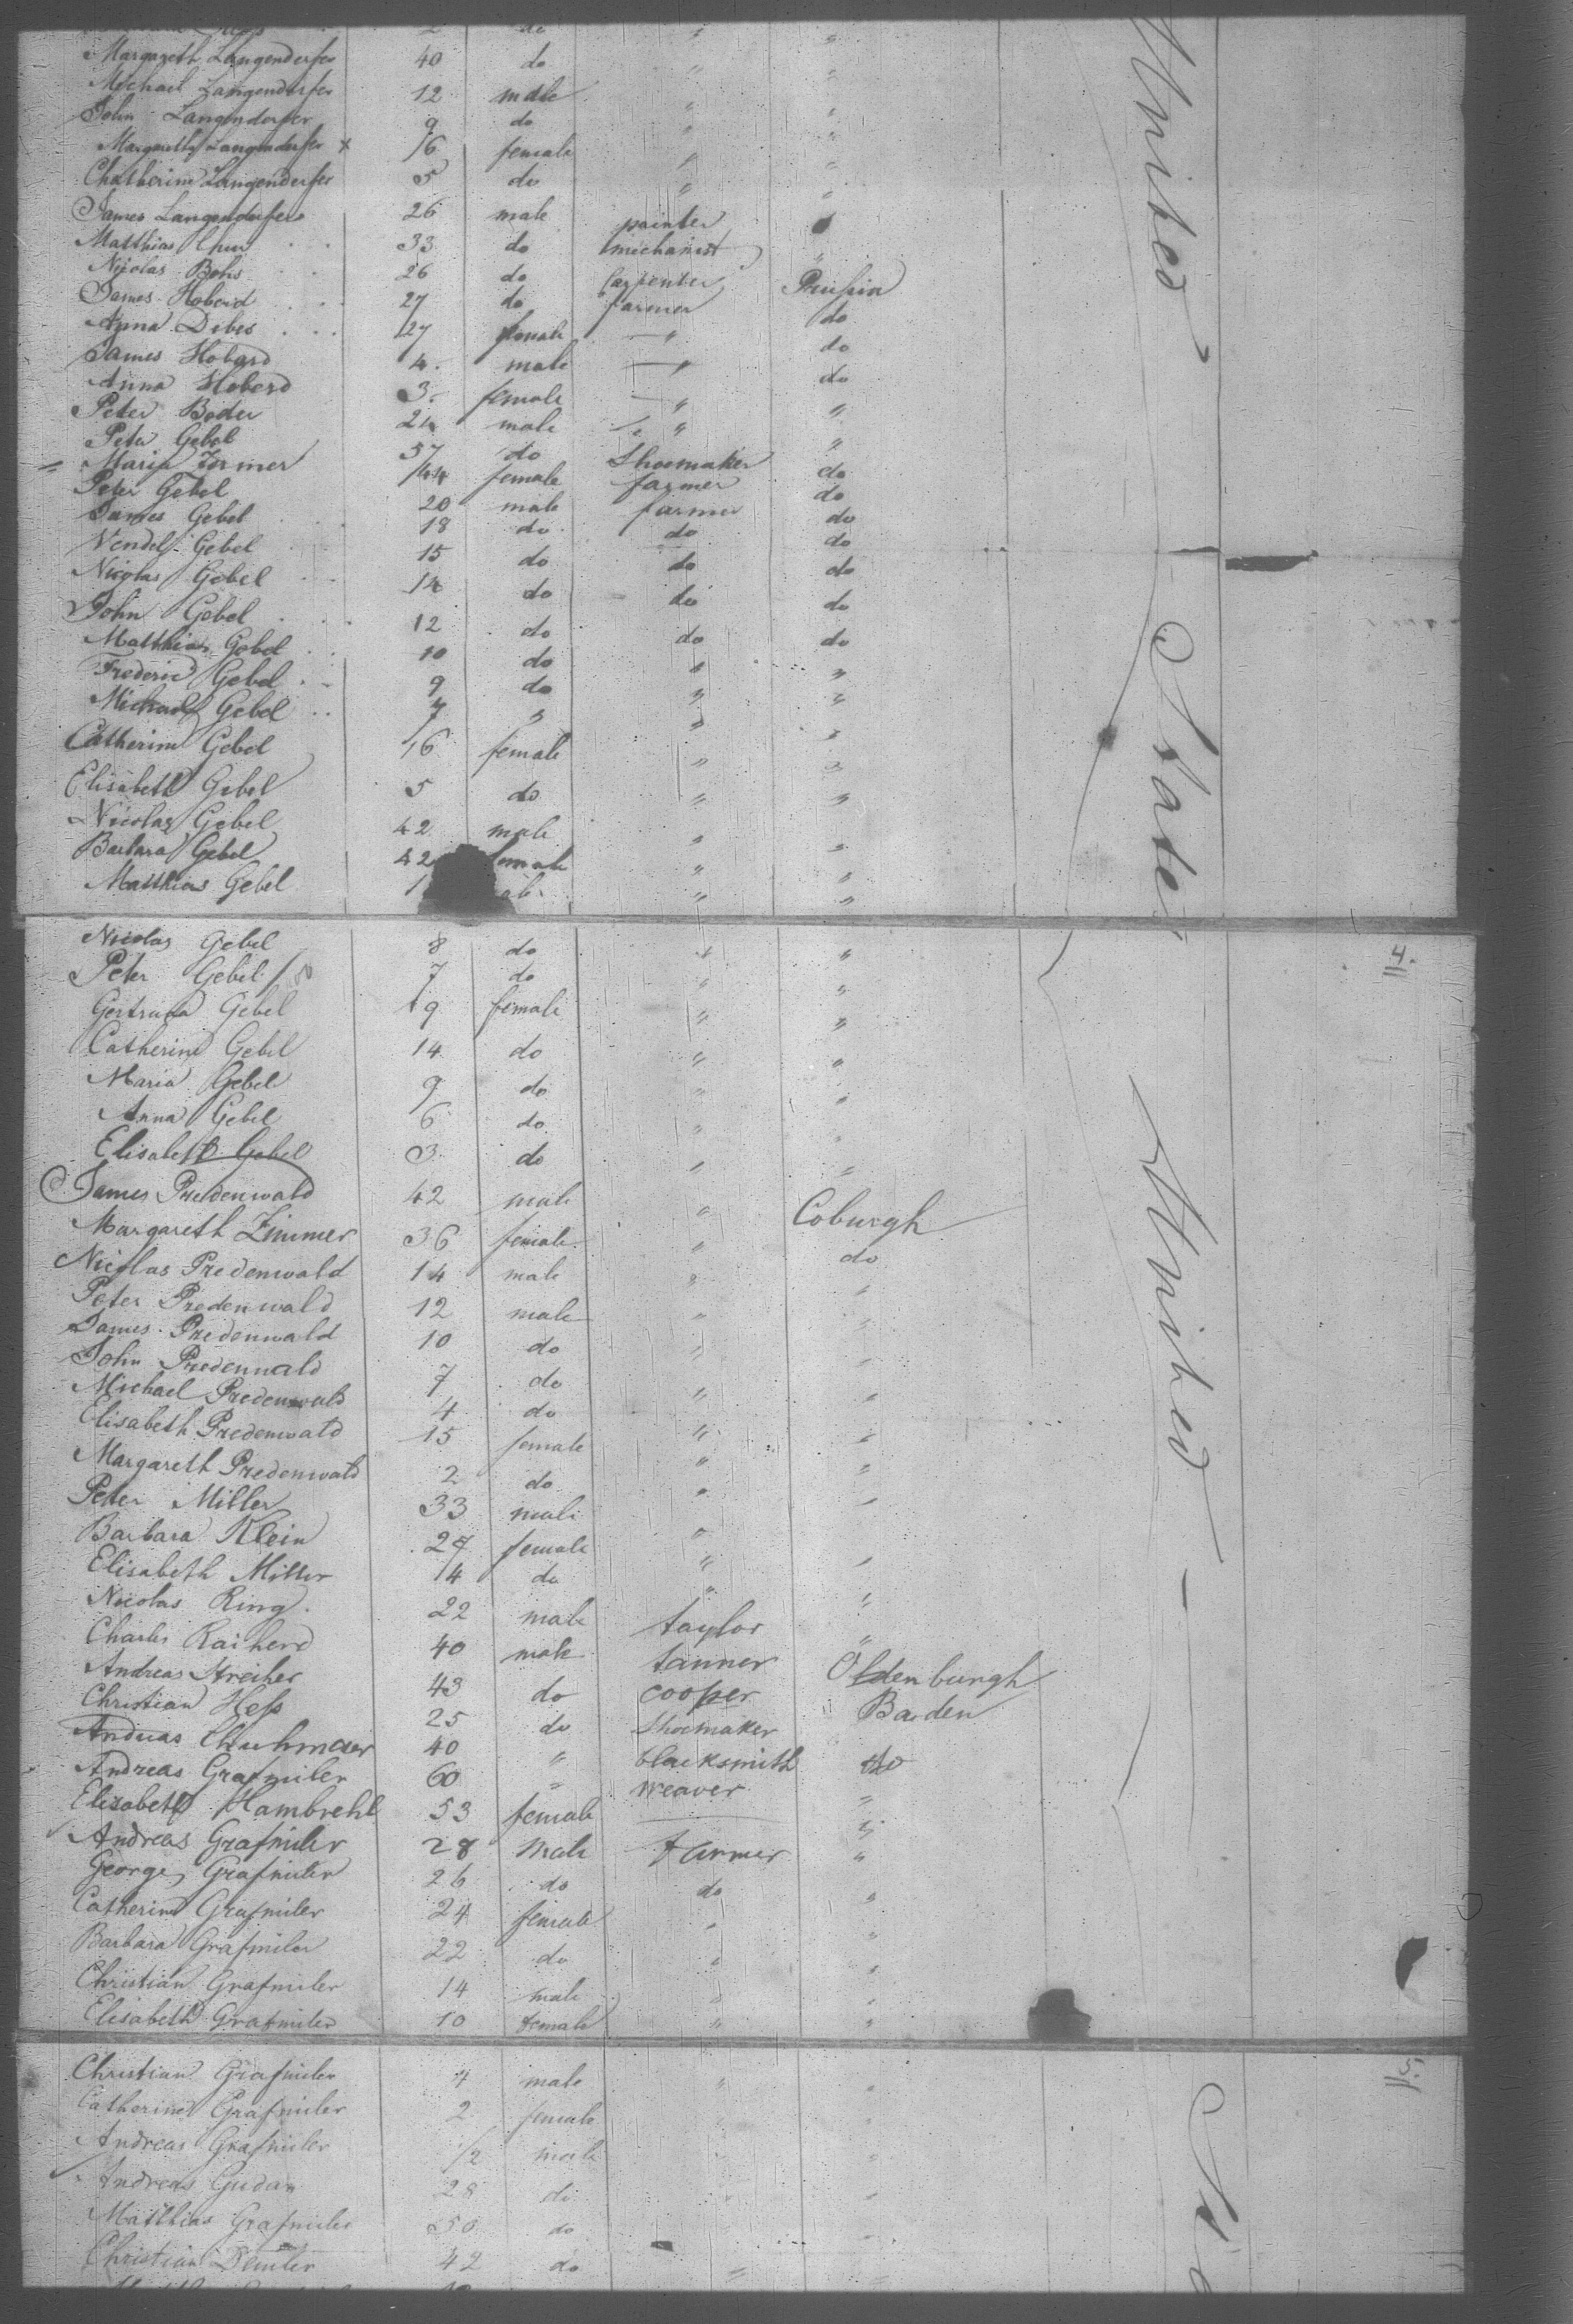 Margareth Langendorfer 40 do " "
Michael Langendorfer 12 male " "
John Langendorfer 9 do " "
Margaretha Langendorfer x 16 female " "
Chatherine Langendorfer 5 do " "
James Langendorfer 26 male painter
Matthias 33 do mechanist "
Nicolas Bohs 26 do Carpenter Prussia
James Hoberd 27 do farmer do
Anna Dibes 27 female — " do
James Hobard 4 male — " do
Anna Hoberd 3 female — " "
Peter Boder 24 male " "
Peter Gebel 57 do Shoemaker do
Maria Zirmer 44 female farmer do
Peter Gebel 20 male farmer do
James Gebel 18 do do do
Vendel Gebel 15 do do do
Nicolas Gebel 14 do do do
John Gebel 12 do do do
Matthias Gebel 10 do " "
Frederic Gebel 9 do " "
Michael Gebel 7 " " "
Catherine Gebel 16 female " "
Elisabeth Gebel 5 do " "
Nicolas Gebel 42 male " "
Barbara Gebel 42 female " "
Matthias Gebel " "
United States
4.
Nicolas Gebel 8 do " "
Peter Gebel 7 do " "
Gertruda Gebel 19 female " "
Catherine Gebel 14 do " "
Maria Gebel 9 do " "
Anna Gebel 6 do " "
Elisabeth Gebel 3 do " "
James Predenwald 42 male " Coburgh
Margareth Zimmer 36 female " do
Nicolas Predenwald 14 male " "
Peter Predenwald 12 male " "
James Predenwald 10 do " "
John Predenwald 7 do " "
Michael Predenwald 4 do " "
Elisabeth Predenwald 15 female " "
Margareth Predenwald 2 do " "
Peter Miller 33 male " "
Barbara Klein 27 female " "
Elisabeth Miller 14 do " "
Nicolas Ring 22 male taylor "
Charles Raiherd 40 male tanner Oldenburgh
Andreas Streiher 43 do cooper Baden
Christian Hess 25 do Shoemaker
Andreas 40 " blacksmith do
Andreas Grafmiler 60 " weaver "
Elisabeth Hambrehl 53 female — "
Andreas Grafmiler 28 Male farmer "
George Grafmiler 26 do do "
Catherine Grafmiler 24 female " "
Barbara Grafmiler 22 do " "
Christian Grafmiler 14 male " "
Elisabeth Grafmiler 10 female " "
United
5.
Christian Grafmiler 4 male " "
Catherine Grafmiler 2 female "
Andreas Grafmiler 1/2 male "
Andreas Gudan 28 do "
Matthias Grafmiler 50 do "
Christian 42 do "